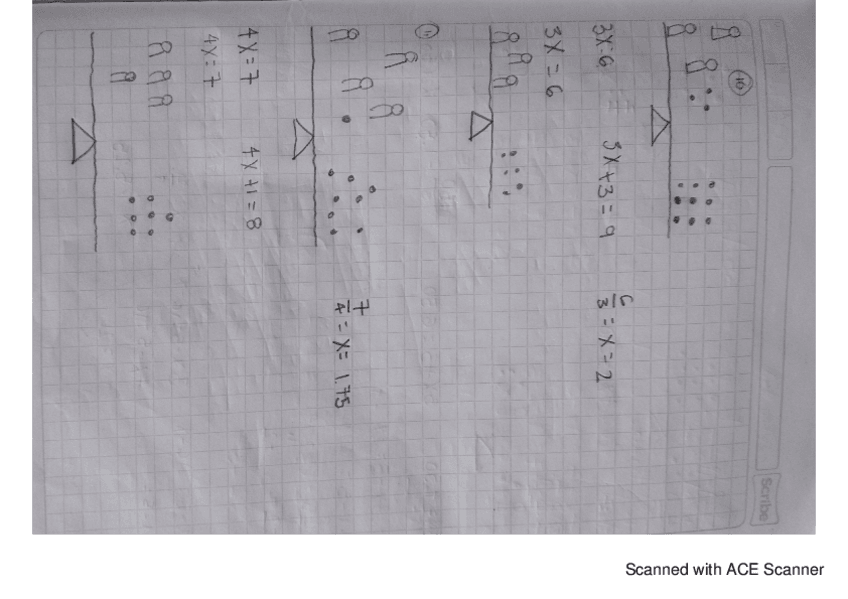 Scribe
10
3X=6 3X+3=9 6/3 = X = 2
3X = 6
11
7/4 = X = 1.75
4X = 7 4X+1=8
4X=7
Scanned with ACE Scanner